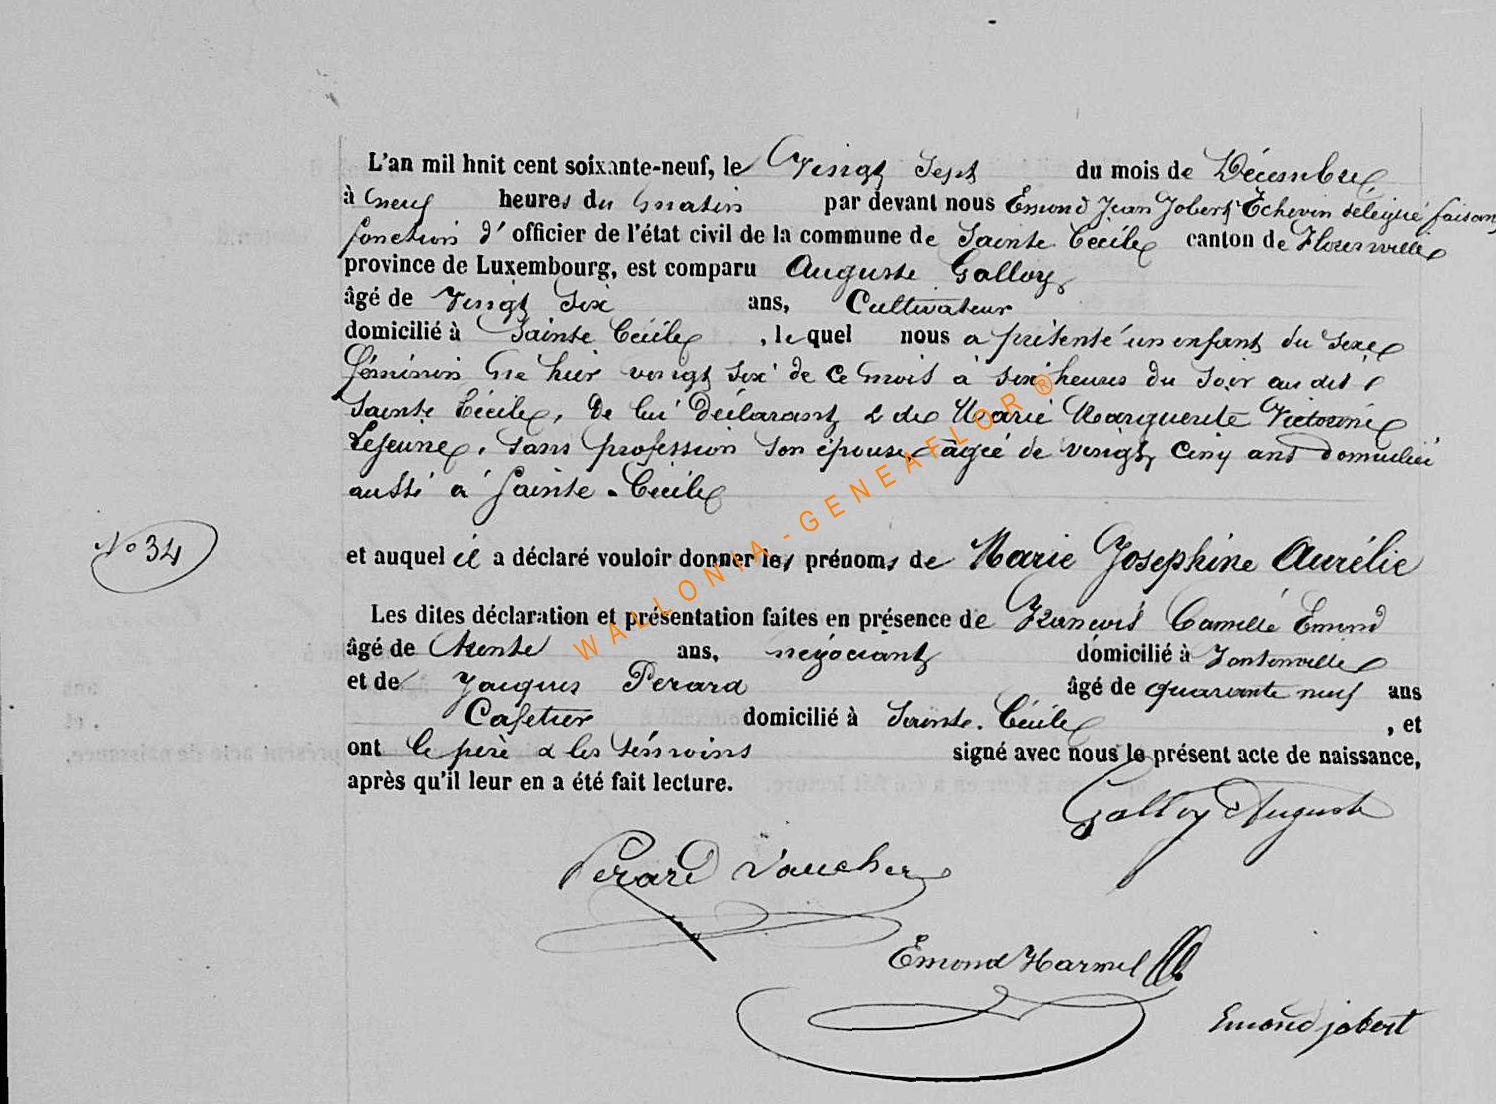 L'an mil huit cent soixante-neuf, le Vingt Sept du mois de Décembre
à neuf heures du matin par devant nous Emond Jean Jobert Echevin délégué faisant
fonction d'officier de l'état civil de la commune de Sainte Cécile canton de Florenville
province de Luxembourg, est comparu Auguste Galloy
âgé de Vingt Six ans, Cultivateur
domicilié à Sainte Cécile, lequel nous a présenté un enfant du sexe
féminin né hier vingt six de ce mois à six heures du soir au dit
Sainte Cécile, de lui déclarant & de Marie Marguerite Victorine
Lejeune, sans profession son épouse, âgée de vingt cinq ans domiciliée
aussi à Sainte-Cécile
N° 34
et auquel il a déclaré vouloir donner les prénoms de Marie Josephine Aurélie
Les dites déclaration et présentation faites en présence de François Camille Emond
âgé de trente ans, négociant domicilié à Fontenoille
et de Jacques Perard âgé de quarante neuf ans
Cafetier domicilié à Sainte-Cécile, et
ont le père & les témoins signé avec nous le présent acte de naissance,
après qu'il leur en a été fait lecture.
Galloy Auguste
Perard Vaucher
Emond Harmel
Emond jobert
WALLONIA-GENEAFLOR®